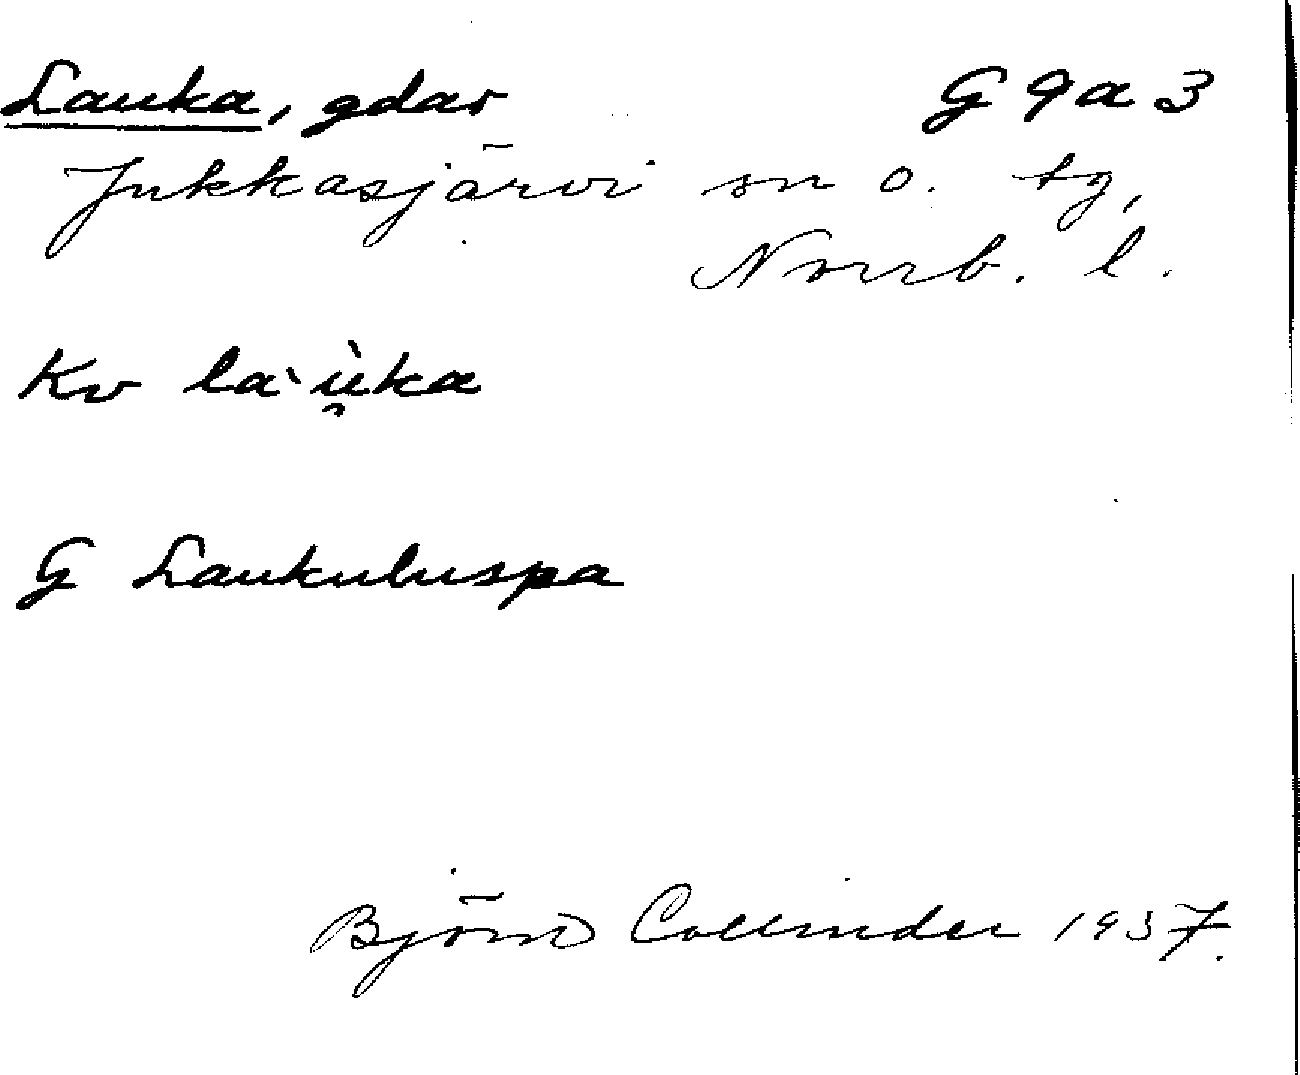 Lauka, gdar G 9 a 3
Jukkasjärvi sn o. tg,
Norrb. l.
Kv la`ù̯ka
G Laukuluspa
Björn Collinder 1937.